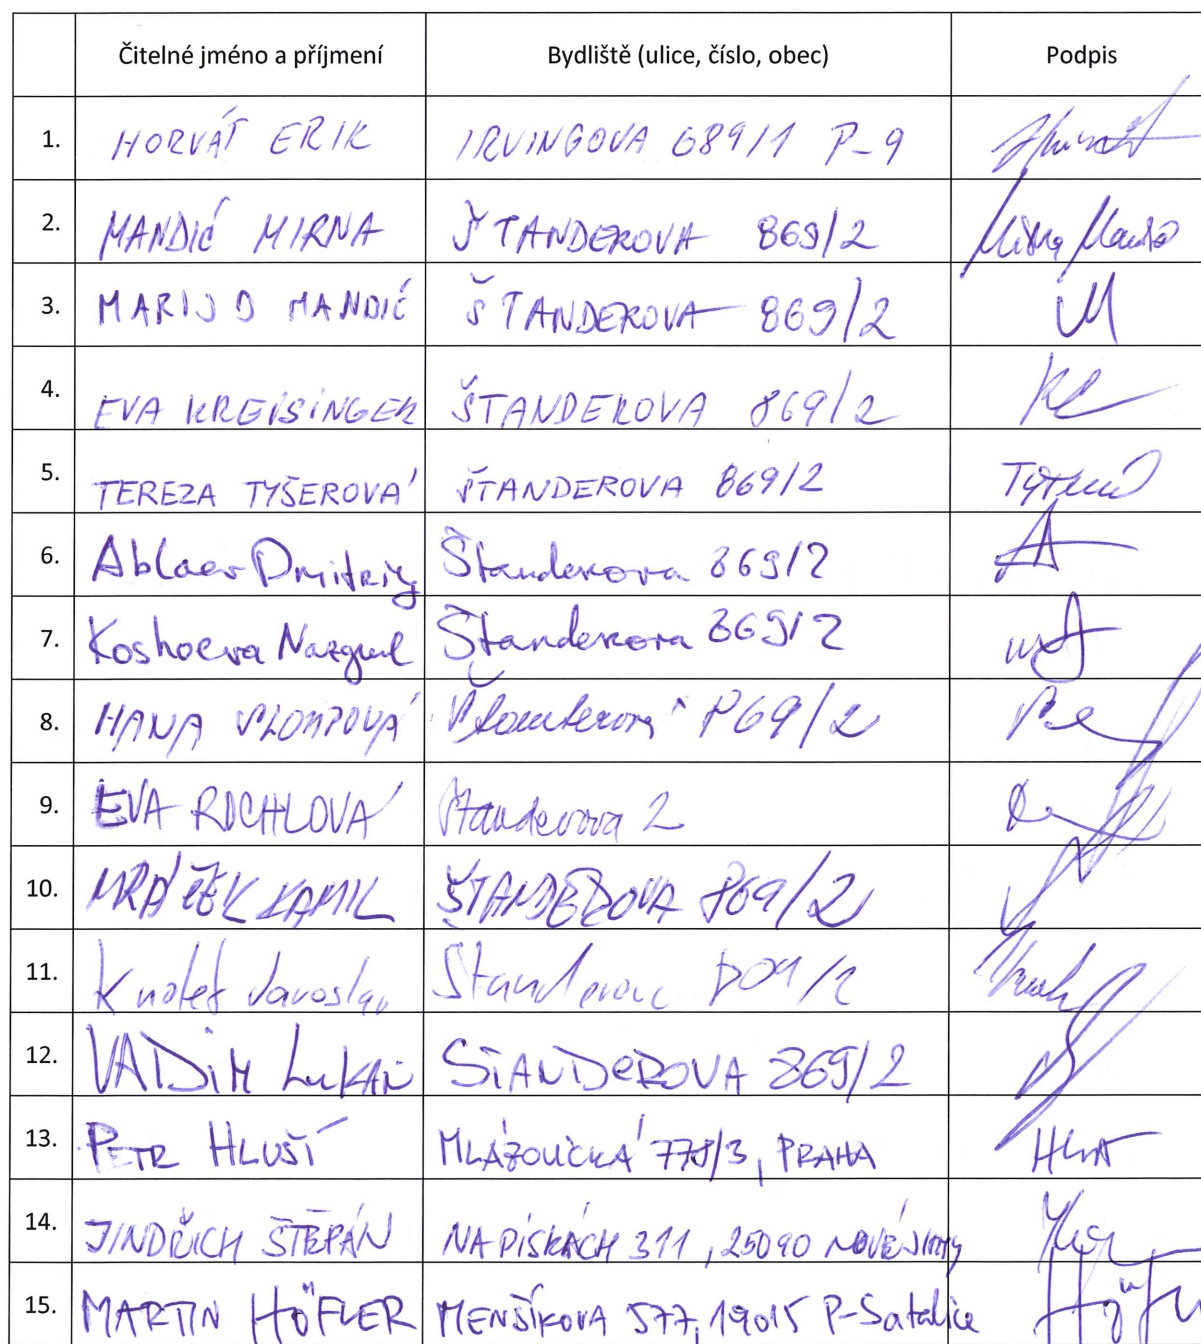 Čitelné jméno a příjmení Bydliště (ulice, číslo, obec) Podpis
1. HORVÁT ERIK IRVINGOVA 689/1 P-9
2. MANDIĆ MIRNA ŠTANDEROVA 869/2 Mirna Mandić
3. MARIJO MANDIĆ ŠTANDEROVA 869/2 M
4. EVA KREISINGER ŠTANDEROVA 869/2
5. TEREZA TYŠEROVÁ ŠTANDEROVA 869/2
6. Ablaev Dmitriy Štanderova 869/2
7. Koshoeva Nazgul Štanderova 869/2
8. HANA 869/2
9. EVA ROCHLOVÁ Štanderova 2
10. MRÁZEK KAMIL ŠTANDEROVA 869/2
11. Jaroslav
12. VADIM LUKAN STANDEROVA 869/2
13. PETR HLUŠÍ MLÁZOVICKÁ 778/3, PRAHA
14. JINDŘICH ŠTĚPÁN NA PÍSKÁCH 311, 25090
15. MARTIN HÖFLER MENŠÍKOVA 577, 19015 P-Satalice